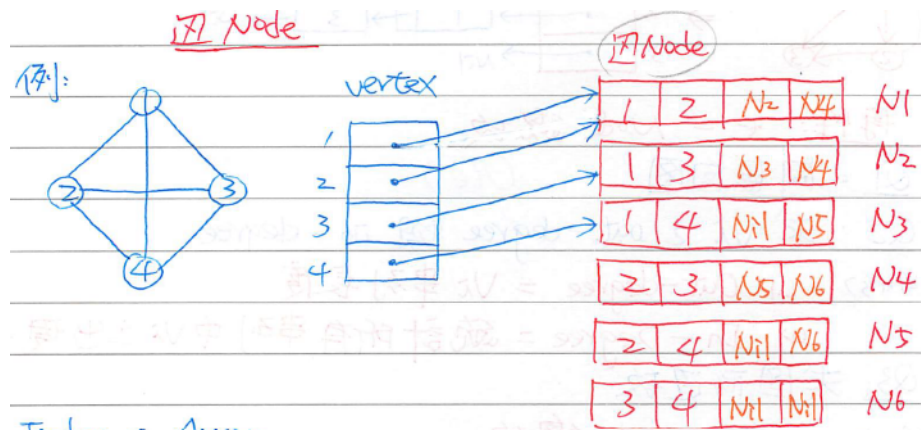 边 Node
例:
1
2
3
4
vertex
1
2
3
4
边Node
1 2 N2 N4 N1
1 3 N3 N4 N2
1 4 Nil N5 N3
2 3 N5 N6 N4
2 4 Nil N6 N5
3 4 Nil Nil N6